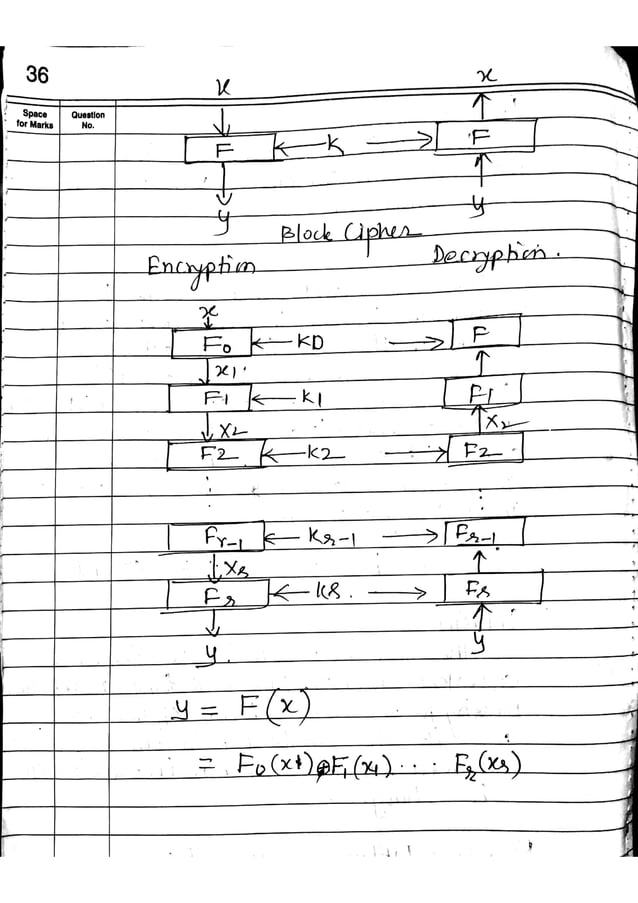 36
Space for Marks
Question No.
x x
F K F
y y
Block Cipher
Encryption Decryption.
x
F0 K0 F
x1
F1 K1 F1
x2 x2
F2 K2 F2
⋮ ⋮
Fr-1 Kr-1 Fr-1
xr
Fr Kr. Fr
y. y
y = F(x)
= F0(x+)⊕F1(x1) .... Fr(xr)